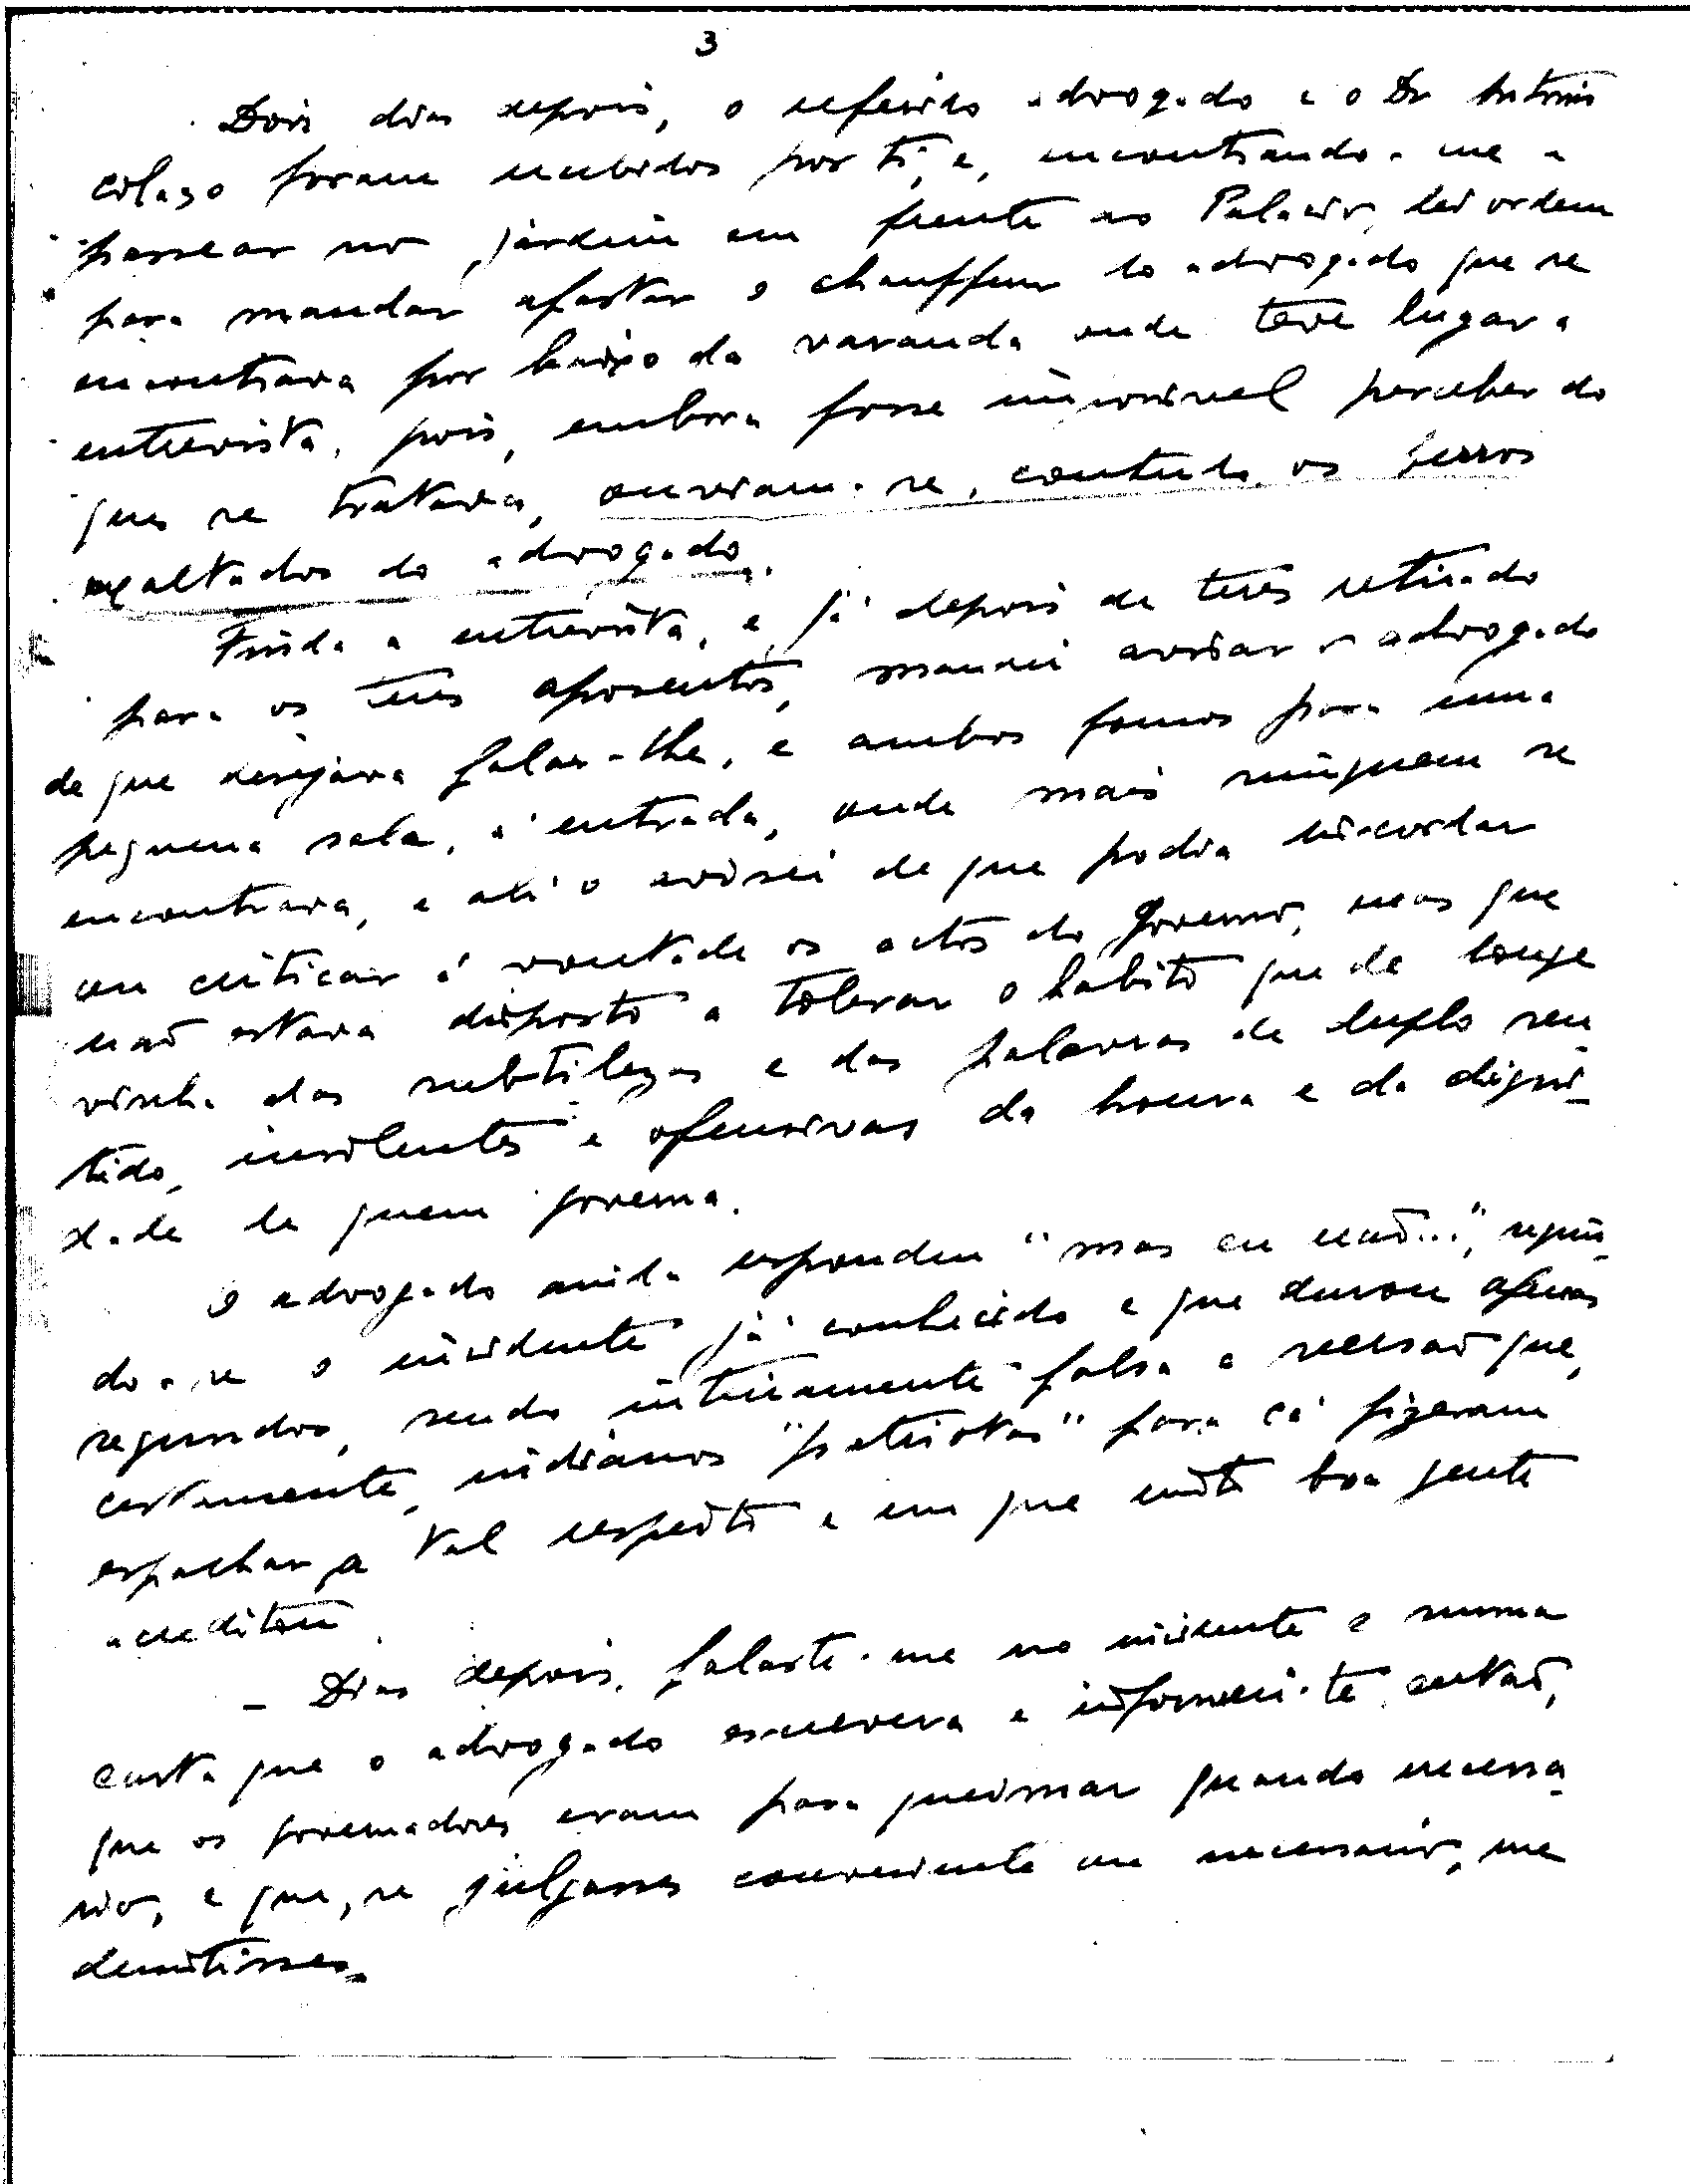 3
Dois dias depois, o referido advogado e o Dr António
Colaço foram recebidos por ti, e, encontrando-me a
passear no jardim em frente ao Palacio, dei ordem
para mandar afastar o chauffeur do advogado que se
encontrava por baixo da varanda onde teve lugar a
entrevista, pois, embora fosse impossivel perceber do
que se tratava, ouviam-se, contudo, os berros
exaltados do advogado.
Finda a entrevista, e já depois de teres retirado
para os teus aposentos, mandei avisar o advogado
de que desejava falar-lhe, e ambos fomos para uma
pequena sala, á entrada, onde mais ninguem se
encontrava, e ali o avisei de que podia discordar
ou criticar á vontade os actos do Governo, mas que
não estava disposto a tolerar o habito que de longe
vinha das subtilezas e das palavras de duplo sen-
tido, insolentes e ofensivas da honra e da digni-
dade de quem governa.
O advogado ainda respondeu "mas eu não...", seguin-
do-se o incidente já conhecido e que durou apenas
segundos, sendo inteiramente falsa a versão que,
certamente, indianos "patriotas" para cá fizeram
espalhar a tal respeito e em que muita boa gente
acreditou.
- Dias depois, falaste-me no incidente e numa
carta que o advogado escrevera e informei-te, então,
que os governadores eram para queimar quando necessa-
rio, e que, se julgasses conveniente ou necessario, me
demitisses.